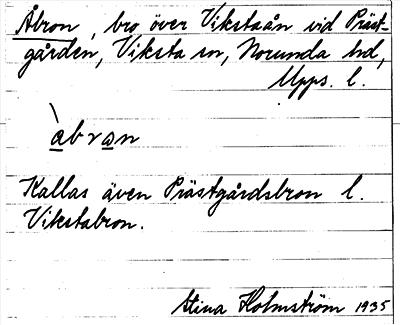 Åbron, bro över Vikstaån vid Präst-
gården, Viksta sn, Norunda hd,
Upps. l.
`abran
Kallas även Prästgårdsbron l.
Vikstabron.
Stina Holmström 1935